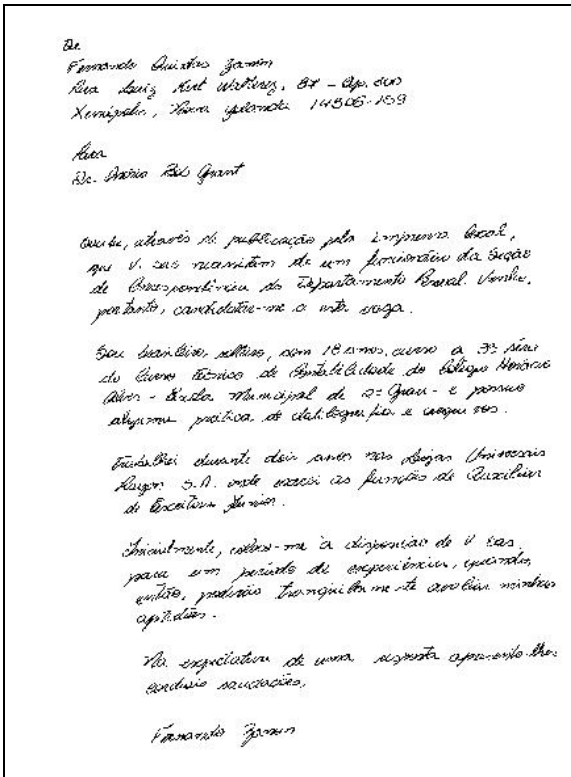 De
Fernando Quintas Zamin
Rua Luiz Kurt Walterez, 87 - Ap. 300
Xenópolis, Nova Yolanda 14806-159
Para
Dr. Ománio Rid Grant
Soube, através de publicação pela imprensa local,
que V. Sas necessitam de um funcionário da Seção
de Correspondência do Departamento Pessoal. Venho,
portanto, candidatar-me a esta vaga.
Sou brasileiro, solteiro, com 18 anos, curso a 3ª série
do Curso Técnico de Contabilidade do Colégio Honório
Alves - Escola Municipal de 2º Grau - e possuo
alguma prática de datilografia e arquivos.
Trabalhei durante dois anos nas Lojas Universais
S.A. onde exerci as funções de Auxiliar
de Escritório Júnior.
Inicialmente, coloco-me à disposição de V. Sas.
para um período de experiência, quando,
então, poderão tranquilamente avaliar minhas
aptidões.
Na expectativa de uma resposta apresento-lhes
cordiais saudações,
Fernando Zamin